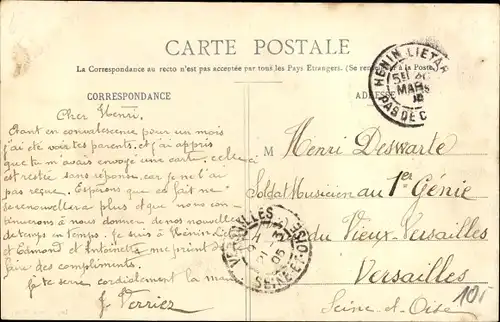 CARTE POSTALE
La Correspondance au recto n'est pas acceptée par tous les Pays Etrangers. (Se à la Poste
CORRESPONDANCE
ADRESSE
HÉNIN-LIÉTAR
MARS
PAS DE C
Cher Henri.
Etant en convalescence pour un mois
j'ai été voir tes parents. et j'ai appris
que tu m'avais envoyé une carte. celle ci
est restée sans réponse. car je ne l'ai
pas reçue. Espérons que ce fait ne
se renouvellera plus et que nous con-
tinuerons à nous donner de nos nouvelles
de temps en temps. Je suis à Hénin-Liétard
et Edmond et Antoinette me prient de te
faire des compliments.
Je te serre cordialement la main
J. Verriez
M Henri Deswarte
Soldat Musicien au 1er Génie
du Vieux-Versailles
Versailles
Seine-et-Oise
VERSAILLES
SEINE-ET-OISE
10